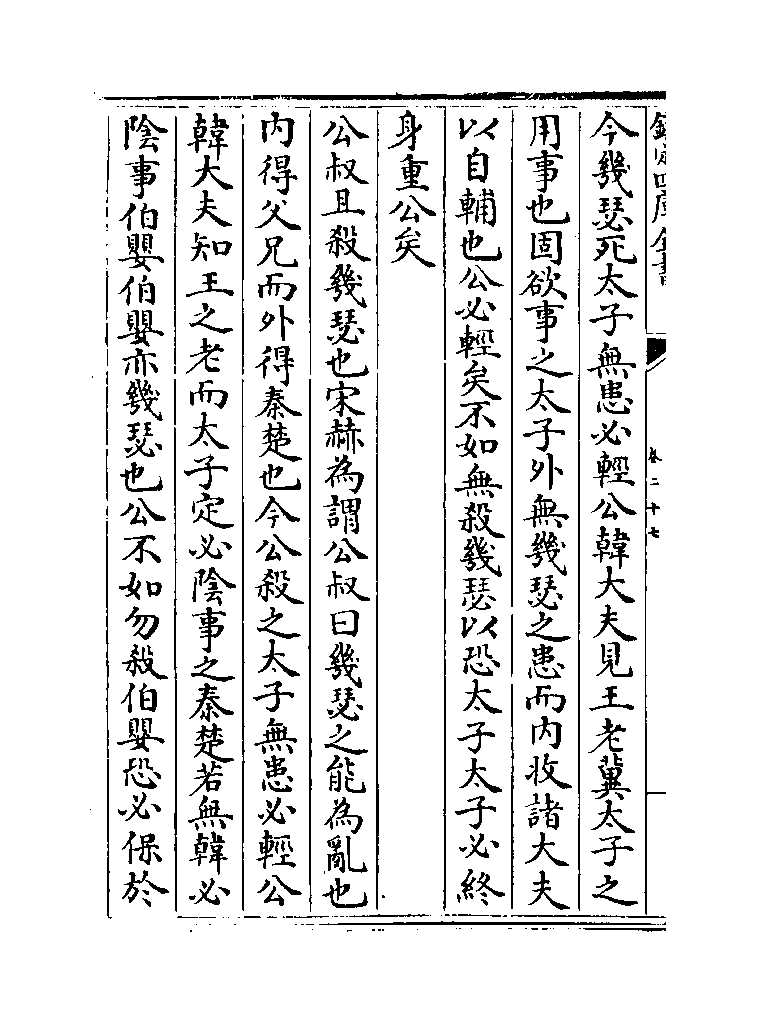 欽定四庫全書
卷二十七
今幾瑟死太子無患必輕公韓大夫見王老冀太子之
用事也固欲事之太子外無幾瑟之患而内收諸大夫
以自輔也公必輕矣不如無殺幾瑟以恐太子太子必終
身重公矣
公叔且殺幾瑟也宋赫為謂公叔曰幾瑟之能為亂也
内得父兄而外得秦楚也今公殺之太子無患必輕公
韓大夫知王之老而太子定必陰事之秦楚若無韓必
陰事伯嬰伯嬰亦幾瑟也公不如勿殺伯嬰恐必保於